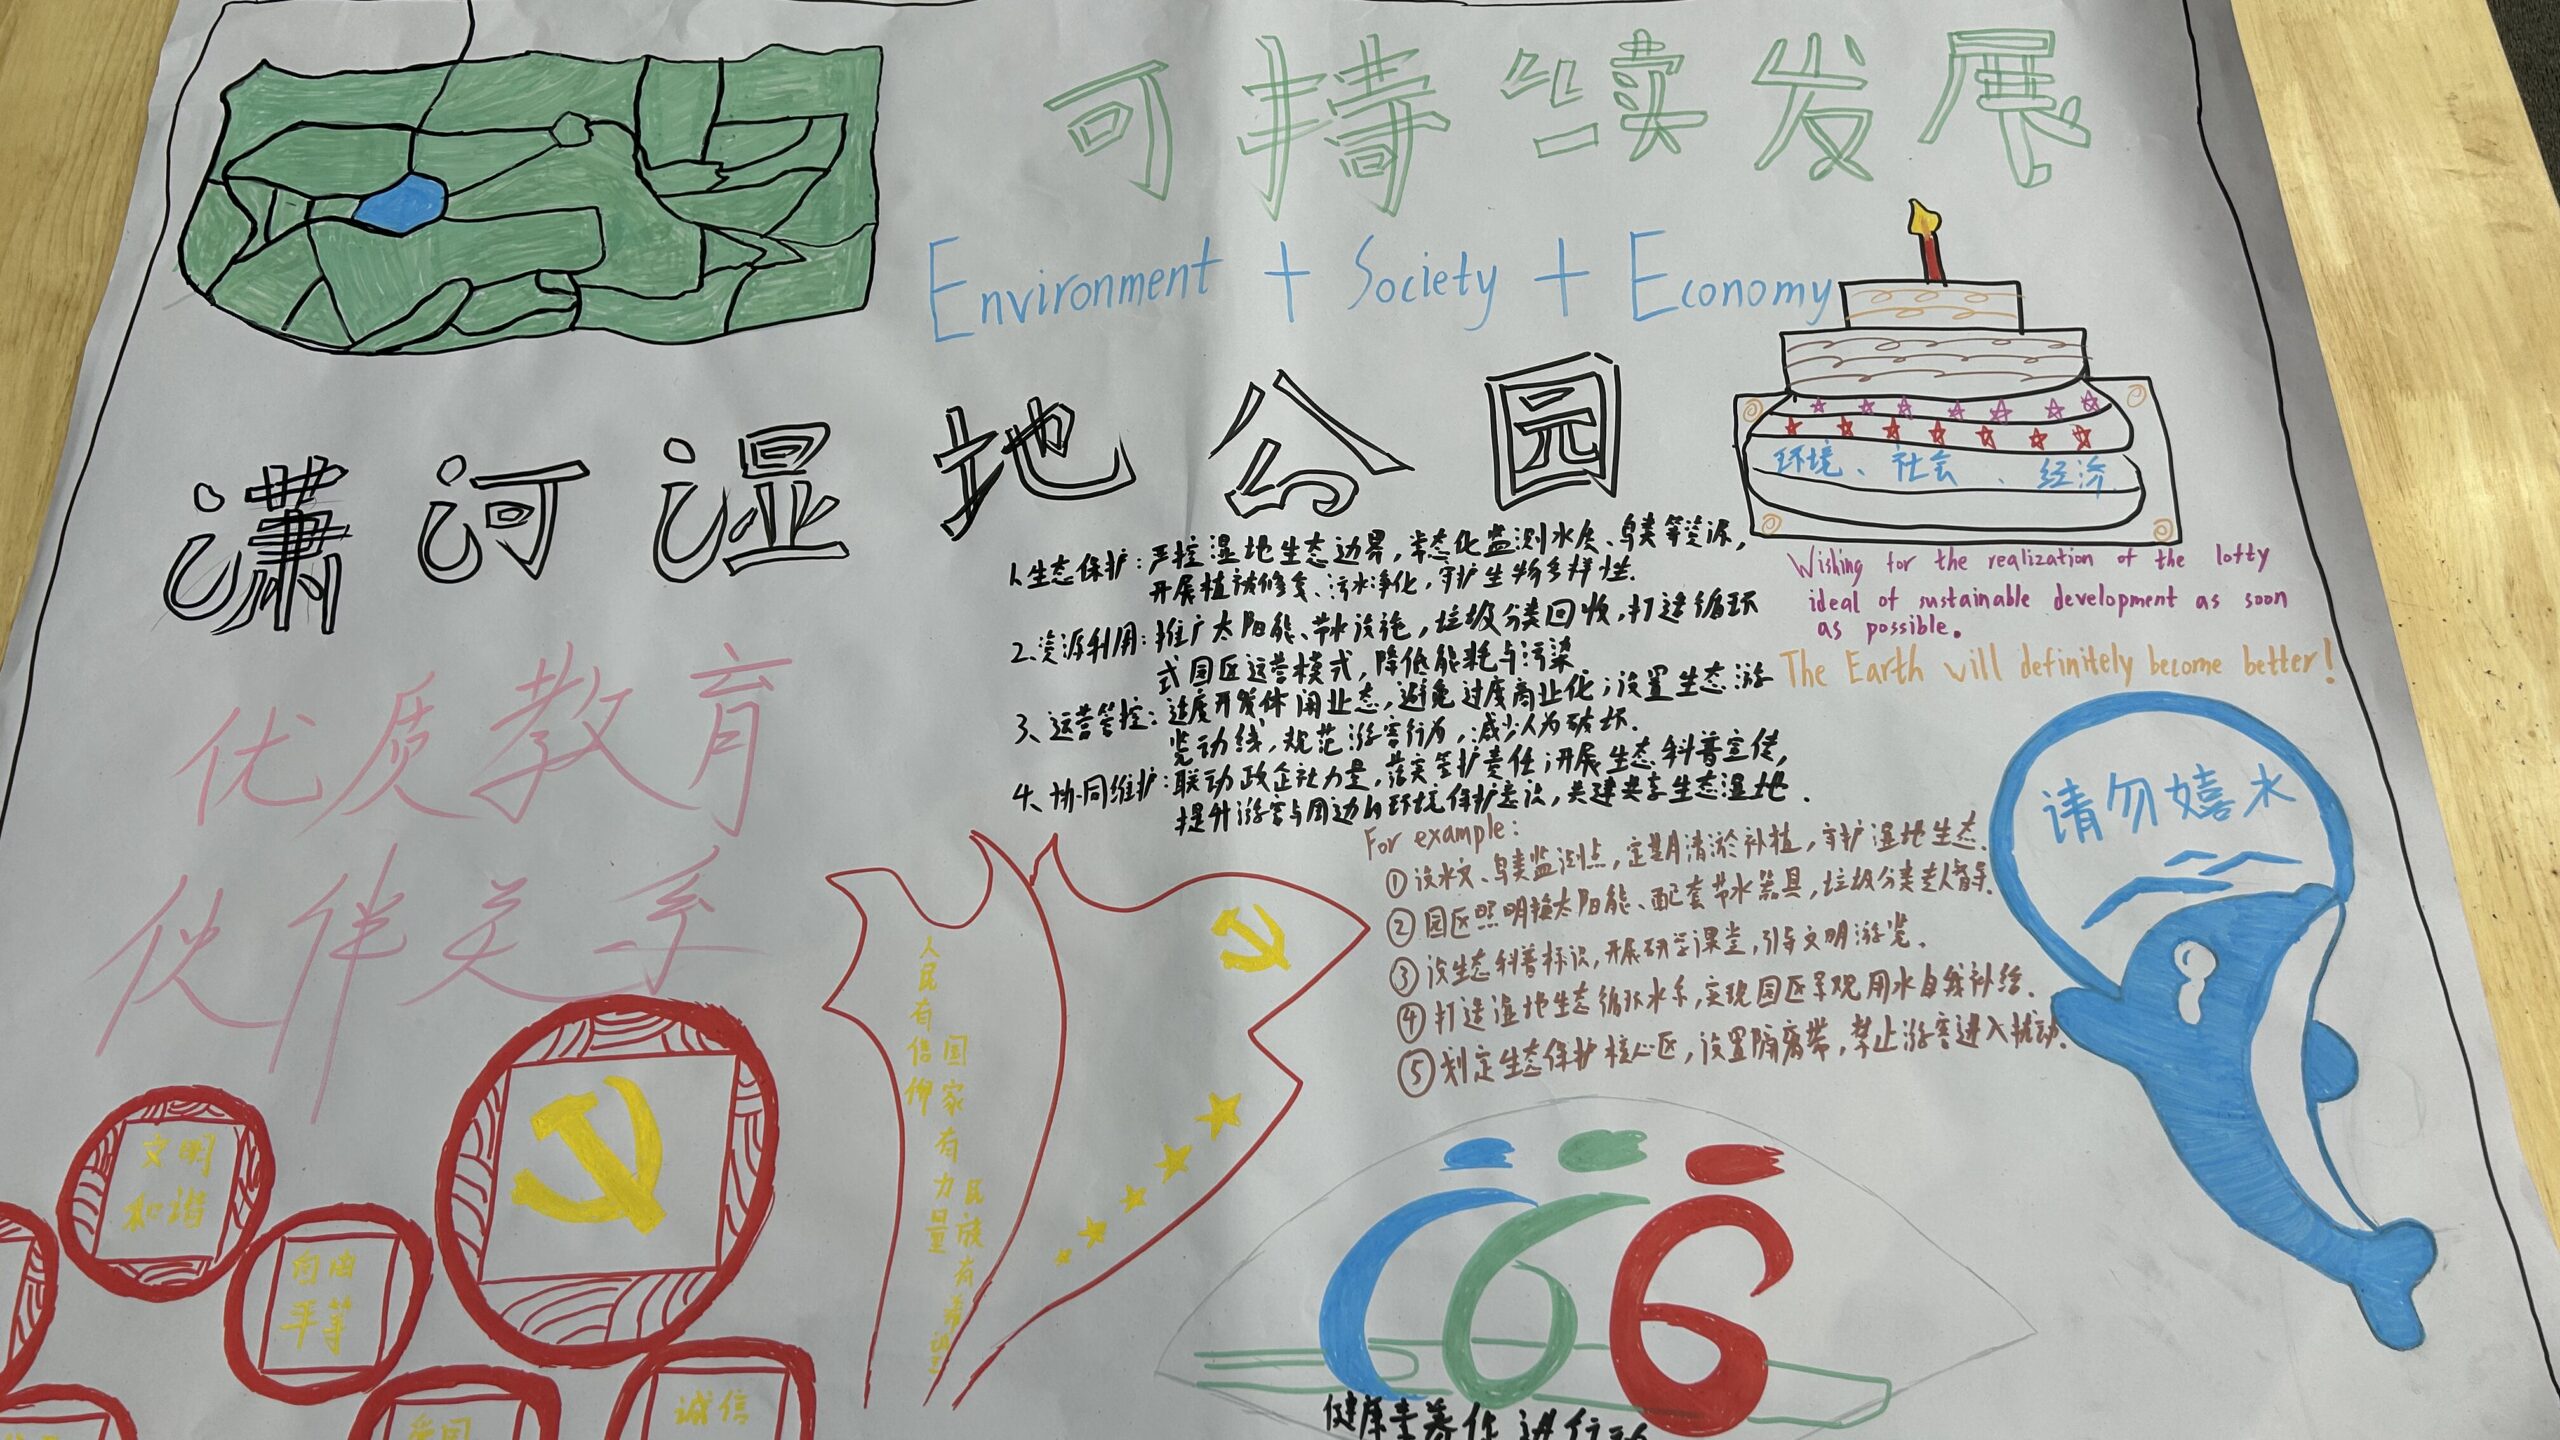 可持续发展
Environment + Society + Economy
潇河湿地公园
环境、社会、经济
Wishing for the realization of the lofty
ideal of sustainable development as soon
as possible.
The Earth will definitely become better!
1、生态保护:严控湿地生态边界,常态化监测水质、鸟类等资源,
开展植被修复、污水净化,守护生物多样性.
2、资源利用:推广太阳能、节水设施,垃圾分类回收,打造循环
式园区运营模式,降低能耗与污染
3、运营管控:适度开发休闲业态,避免过度商业化;设置生态游
览动线,规范游客行为,减少人为破坏.
4、协同维护:联动政企社力量,落实管护责任;开展生态科普宣传,
提升游客与周边的环境保护意识,共建共享生态湿地.
For example:
①设水文、鸟类监测点,定期清淤补植,守护湿地生态.
②园区照明换太阳能、配套节水器具,垃圾分类专人督导.
③设生态科普标识,开展研学课堂,引导文明游览.
④打造湿地生态循环水系,实现园区景观用水自我补给.
⑤划定生态保护核心区,设置隔离带,禁止游客进入扰动.
请勿嬉水
优质教育
伙伴关系
人民有信仰
国家有力量
民族有希望
文明
和谐
自由
平等
爱国
诚信
健康素养促进行动